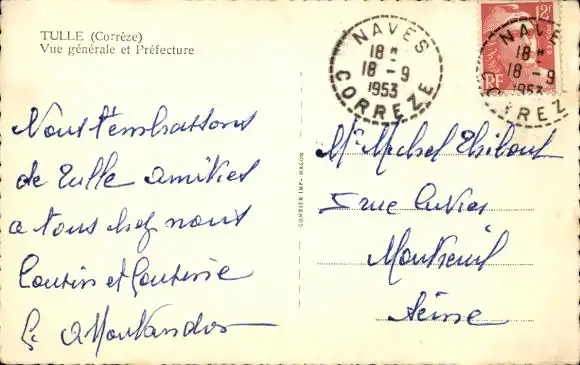 TULLE (Corrèze)
Vue générale et Préfecture
Nous t'embrassons
de Tulle amitiés
a tous chez nous
Cousin et Cousine
COMBIER IMP. MACON
NAVES
18 H
18 - 9
1953
CORREZE
12F
POSTES
RF
NAVE
18 H
18 - 9
1953
CORREZ
Mr Michel Thibout
5 rue Cuvier
Montreuil
Seine